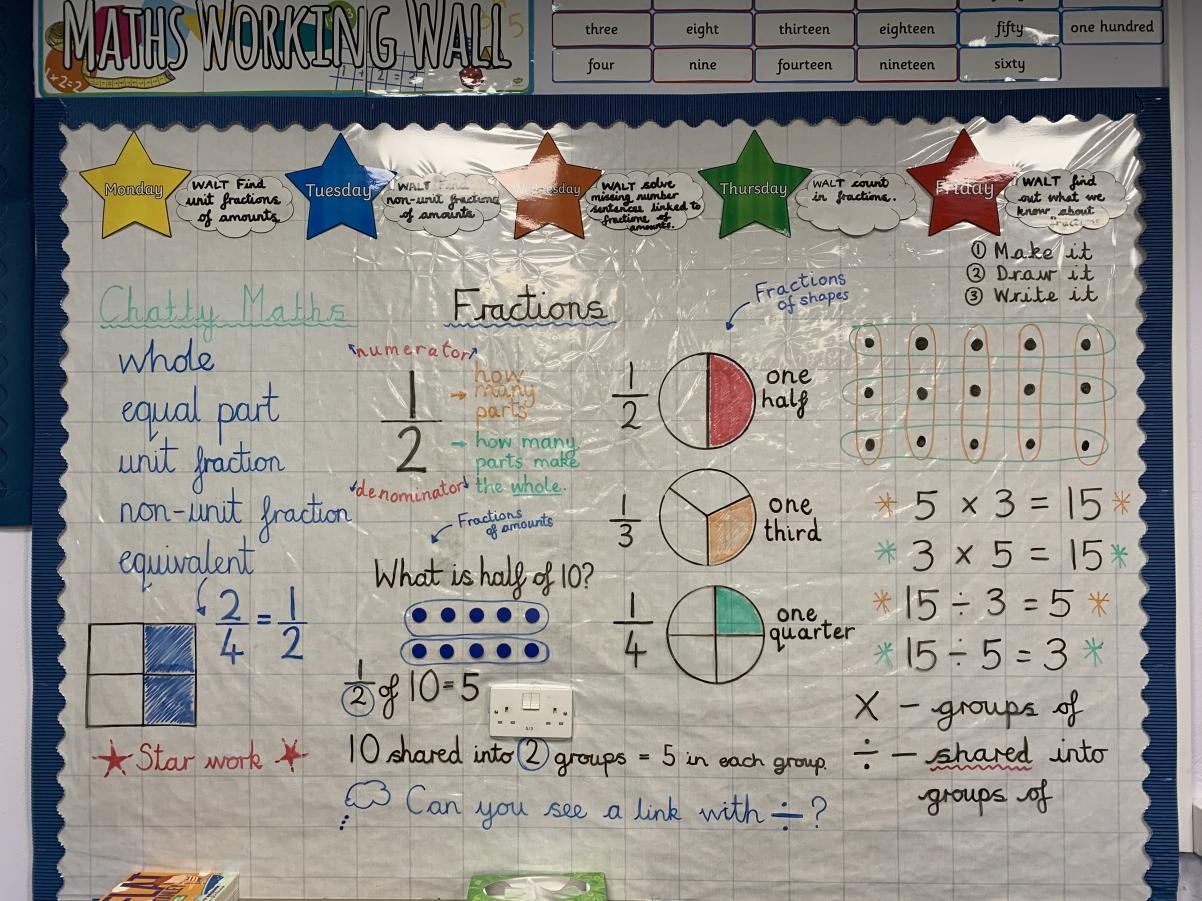 MATHS WORKING WALL
1+2=2
three
eight
thirteen
eighteen
fifty
one hundred
four
nine
fourteen
nineteen
sixty
Monday
WALT Find
unit fractions
of amounts.
Tuesday
WALT Find
non-unit fractions
of amounts
Wednesday
WALT solve
missing number
sentences linked to
fractions of
amounts.
Thursday
WALT count
in fractions.
Friday
WALT find
out what we
know about
fractions
① Make it
② Draw it
③ Write it
Chatty Maths
whole
equal part
unit fraction
non-unit fraction
equivalent
2/4 = 1/2
Star work
Fractions
numerator
1/2
how
many
parts
how many
parts make
the whole.
denominator
Fractions
of amounts
What is half of 10?
1/2 of 10=5
10 shared into 2 groups = 5 in each group.
Can you see a link with ÷?
Fractions
of shapes
1/2
one
half
1/3
one
third
1/4
one
quarter
* 5 x 3 = 15 *
* 3 x 5 = 15 *
* 15 ÷ 3 = 5 *
* 15 ÷ 5 = 3 *
X - groups of
÷ - shared into
groups of